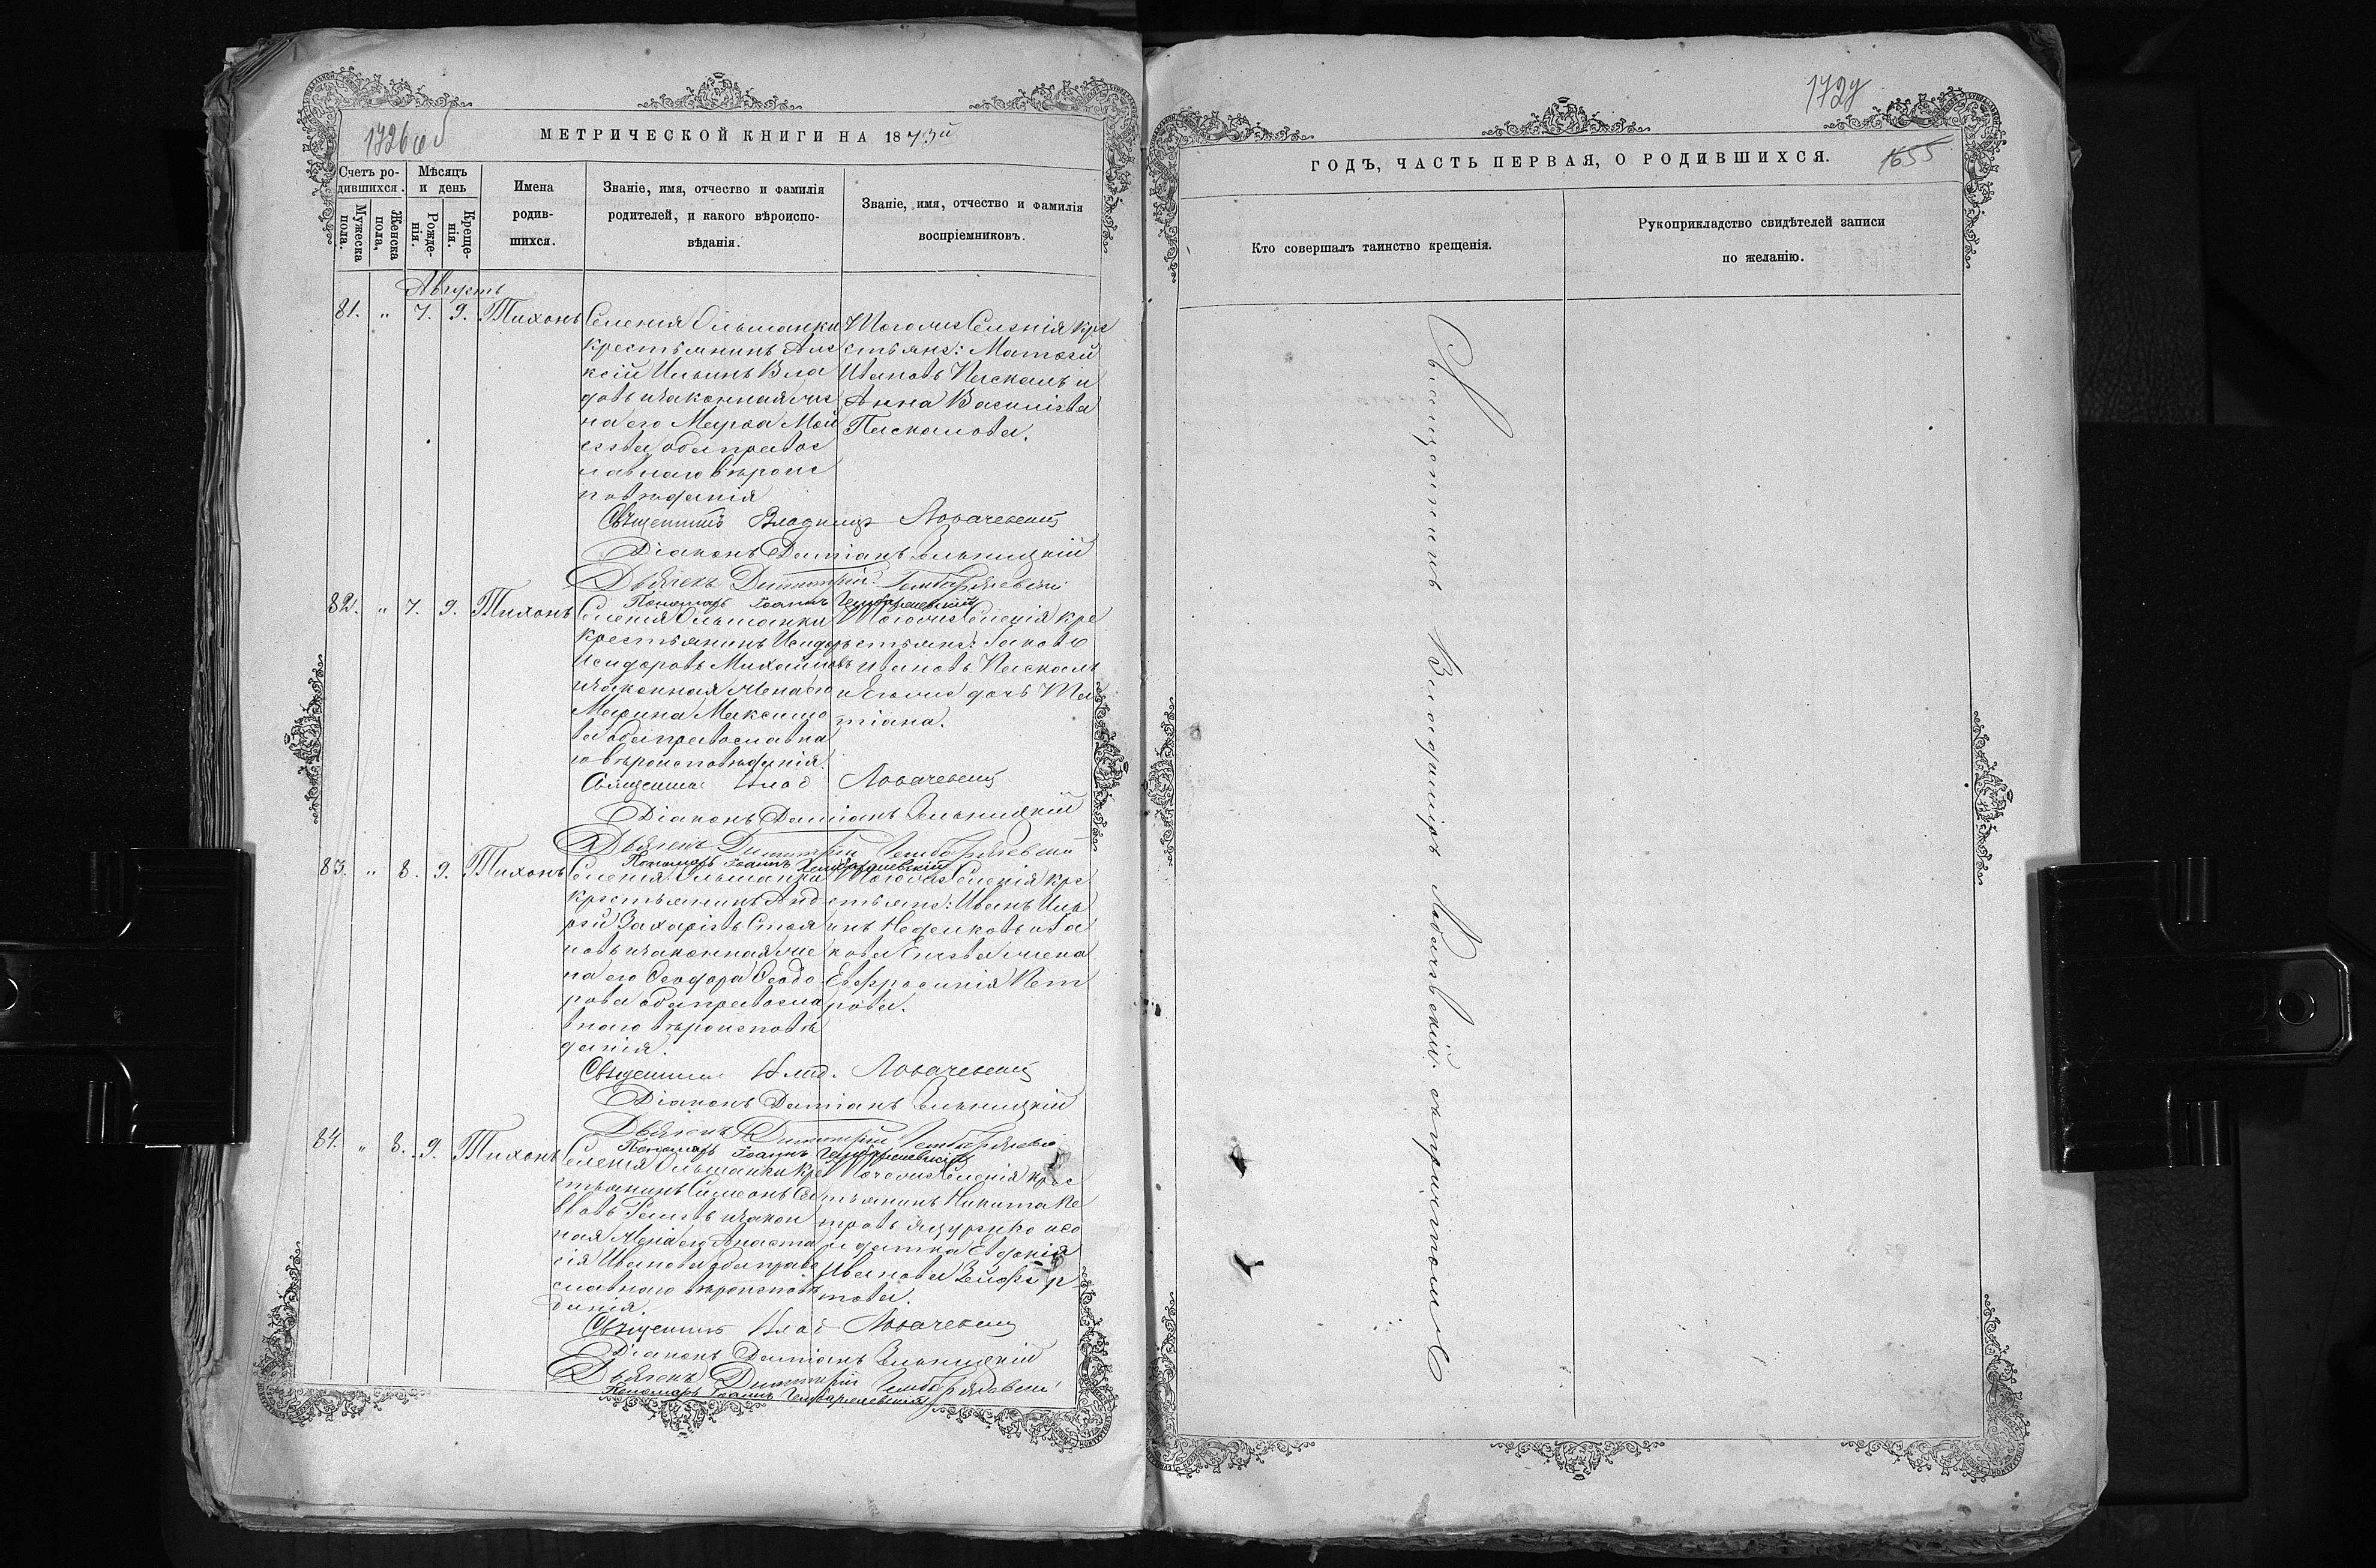 1726 об
МЕТРИЧЕСКОЙ КНИГИ НА 1873й
Счетъ родившихся.
Мѣсяцъ и день
Мужеска пола.
Женска пола,
Рожденія.
Крещенія.
Имена родившихся.
Званіе, имя, отчество и фамилія
родителей, и какого вѣроиспо-
вѣданія.
Званіе, имя, отчество и фамилія
воспріемниковъ.
Августъ
81. " 7. 9. Тихонъ
Селенія Ольшанки
крестьянинъ Але
ксій Ильинъ Вла
довъ и законная же
на его Марѳа Мой
сеева оба правос
лавнаго вѣроис
повѣданія
Тогоже Селенія кре
стьяне: Матѳей
Ивановъ Паскаль и
Анна Василіева
Паскалова.
Священникъ Владиміръ Лобачевскій
Діаконъ Даміанъ Зельницкій
Дьячекъ Димитрій
Пономарь Іоаннъ
82. " 7. 9. Тихонъ
Селенія Ольшанки
крестьянинъ Исидоръ
Исидоровъ Михайловъ
и законная жена его
Марина Максимо
ва оба православна
го вѣроисповѣданія.
Тогоже Селенія кре
стьяне: Іаковъ
Ивановъ Паскаль
и дочь
Священникъ Влад Лобачевскій
Діаконъ Даміанъ Зельницкій
Дьячекъ Димитрій
Пономарь Іоаннъ
83. " 8. 9. Тихонъ
Селенія Ольшанки
крестьянинъ Анд
рей Захаріевъ Стоя
новъ и законная же
на его Ѳеодора Ѳеодо
рова оба правосла
внаго вѣроисповѣ
данія.
Тогоже Селенія кре
стьяне: Иванъ Иль
инъ Неделковъ и Иа
кова жена
Евфросинія Пет
рова.
Священникъ Влад. Лобачевскій
Діаконъ Даміанъ Зельницкій
Дьячекъ Димитрій
Пономарь Іоаннъ
84. " 8. 9. Тихонъ
Селенія Ольшанки кре
стьянинъ Симеонъ Са
ввовъ и закон
ная жена его Анаста
сія Иванова оба право
славнаго вѣроисповѣ
данія.
Тогоже Селенія крес
тьянинъ Никита Пе
тровъ и со
лдатка Евдокія
Иванова
Священникъ Влад Лобачевскій
Діаконъ Даміанъ Зельницкій
Дьячекъ Димитрій
Пономарь Іоаннъ
1727
ГОДЪ, ЧАСТЬ ПЕРВАЯ, О РОДИВШИХСЯ.
1655
Кто совершалъ таинство крещенія.
Рукоприкладство свидѣтелей записи
по желанію.
Священникъ Владиміръ Лобачевскій съ причтомъ